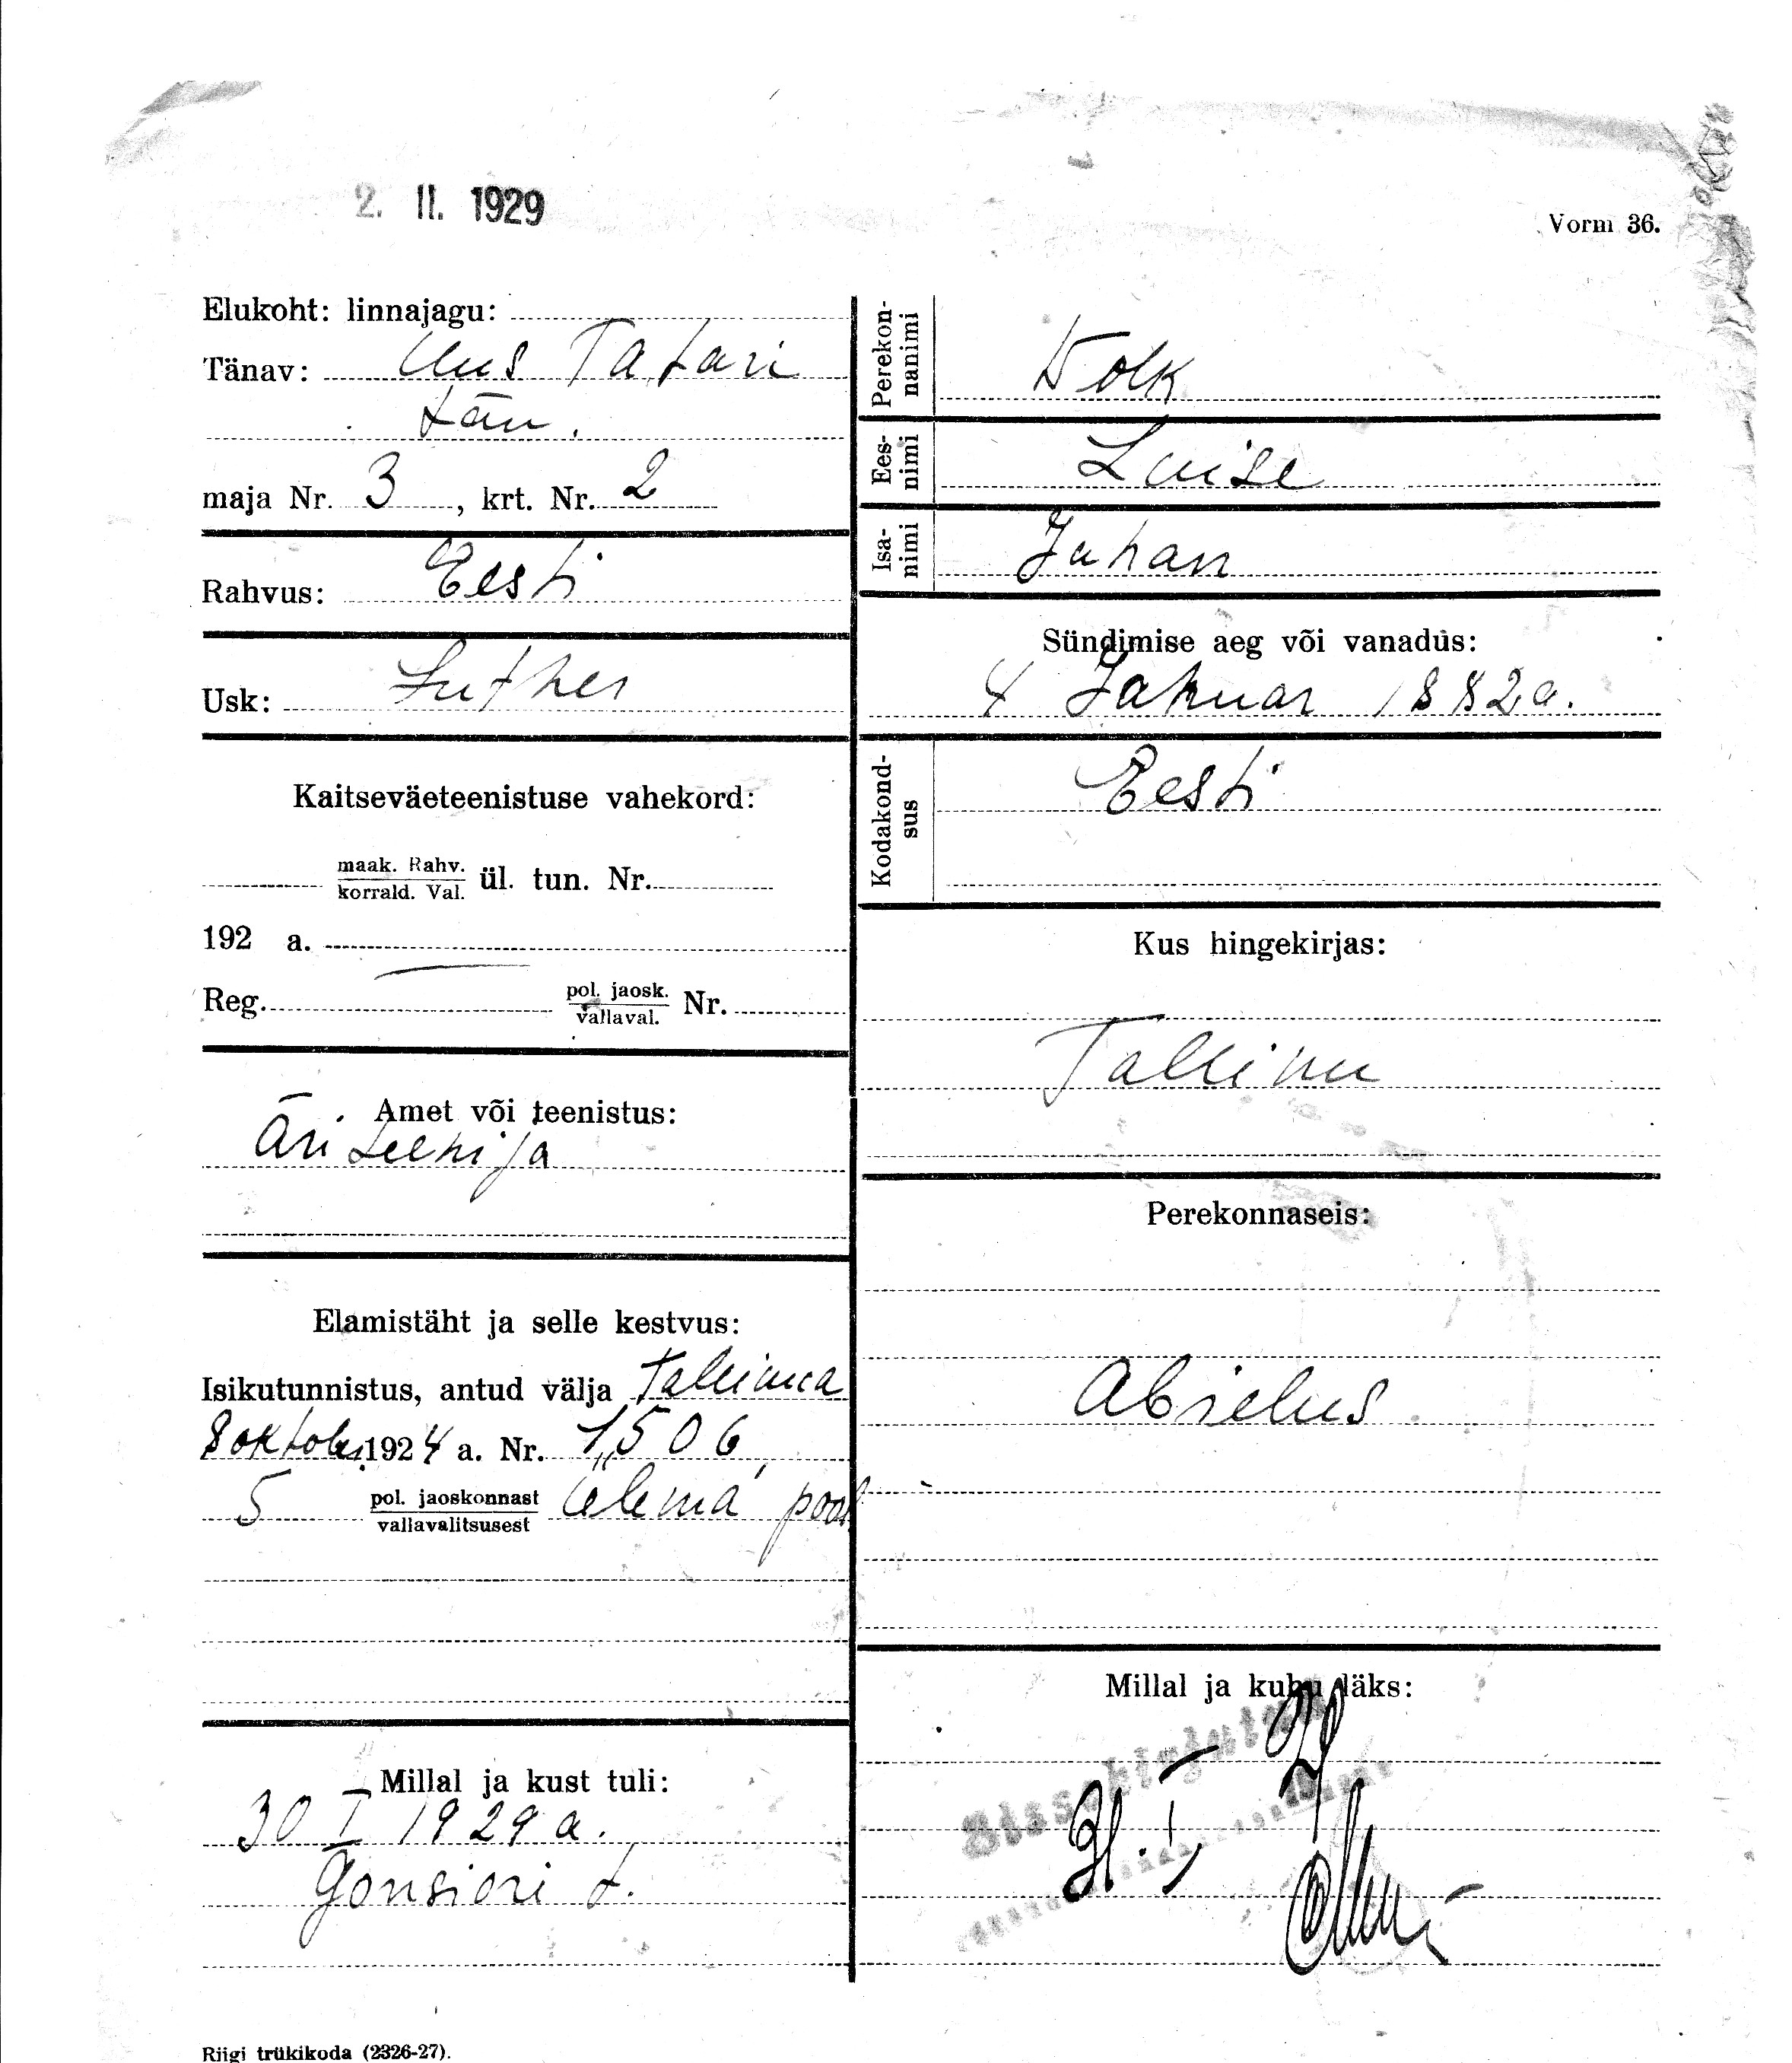 2. II. 1929
Vorm 36.
Elukoht: linnajagu:
Tänav: Uus Tatari
tän.
maja Nr. 3, krt. Nr. 2
Rahvus: Eesti
Usk: Luther
Kaitseväeteenistuse vahekord:
maak. Rahv.
korrald. Val. ül. tun. Nr.
192 a.
Reg. pol. jaosk.
vallaval. Nr.
Amet või teenistus:
Äri teenija
Elamistäht ja selle kestvus:
Isikutunnistus, antud välja Tallinna
8 oktober 1924 a. Nr. 1506
5 pol. jaoskonnast
vallavalitsusest Ülema pool
Millal ja kust tuli:
30 I 1929 a.
Gonsiori t.
Perekon-
nanimi
Volk
Ees-
nimi
Luise
Isa-
nimi
Juhan
Sündimise aeg või vanadus:
4 Januar 1882 a.
Kodakond-
sus
Eesti
Kus hingekirjas:
Tallinn
Perekonnaseis:
Abielus.
Millal ja kuhu läks:
Sissekirjutatud
31. I
Riigi trükikoda (2326-27).